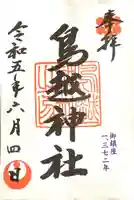 奉拝
御鎮座
一、三七二年
鳥越神社
令和五年六月四日